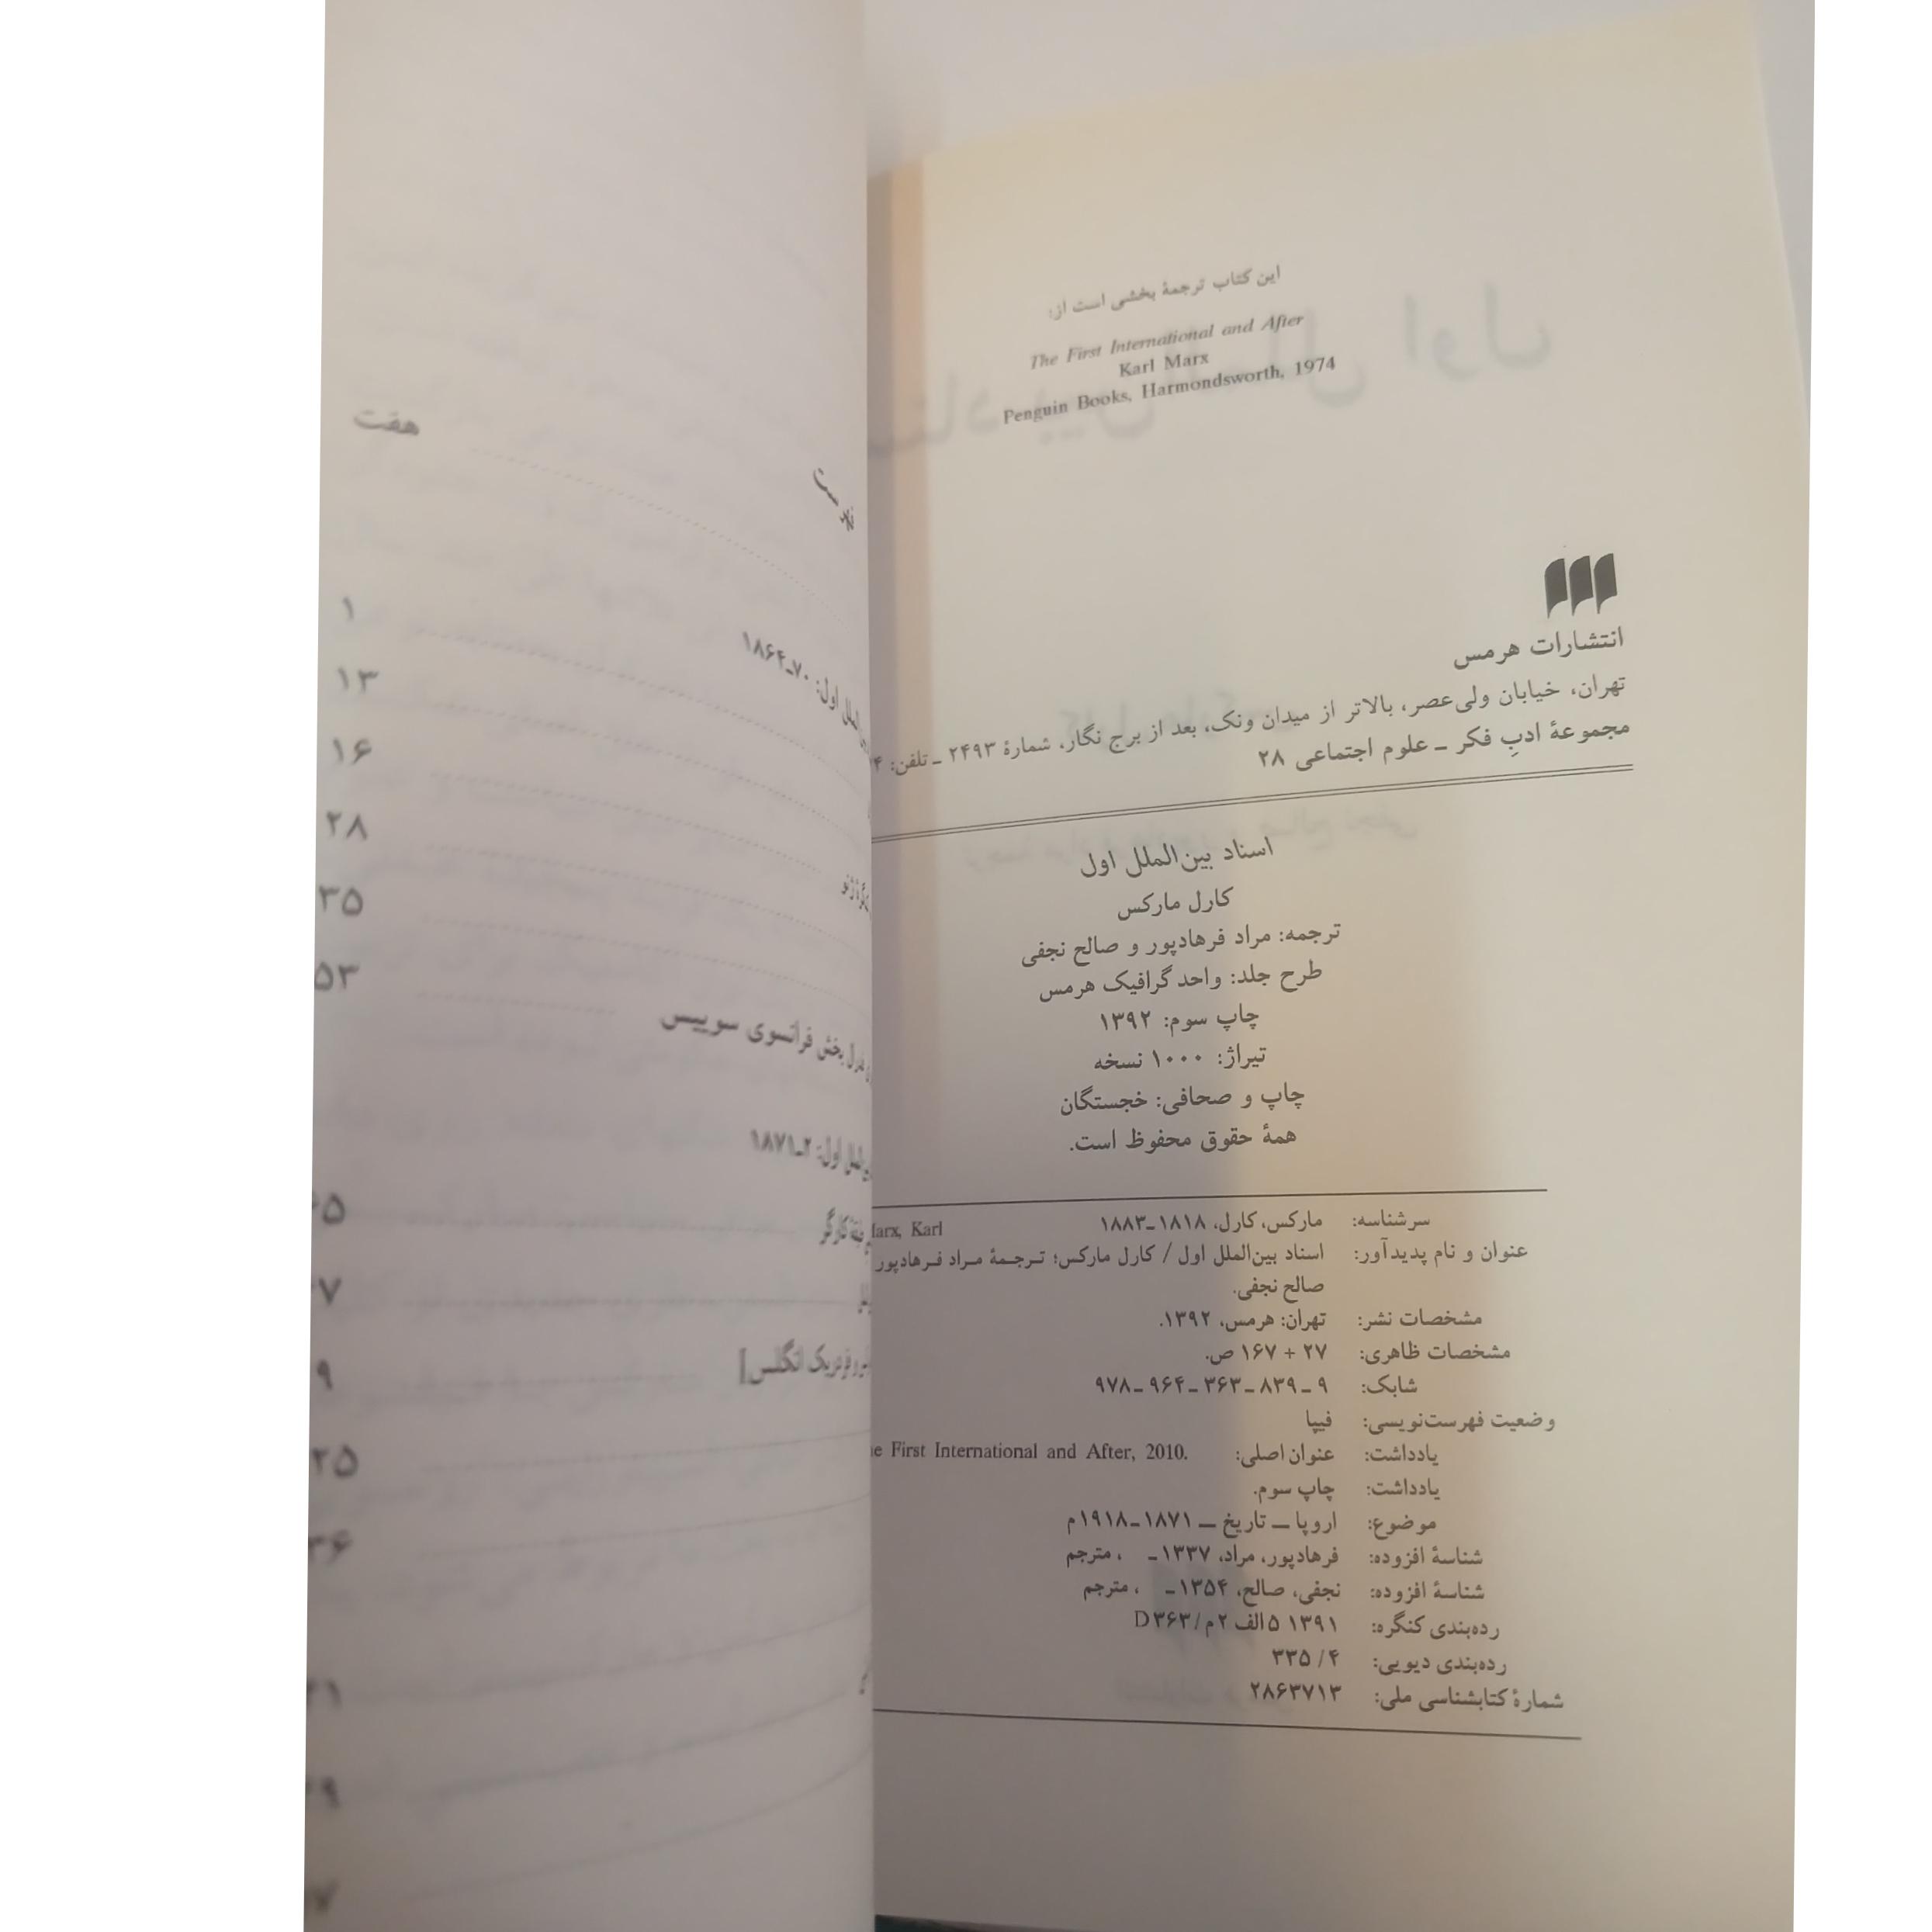 این کتاب ترجمهٔ بخشی است از:
The First International and After
Karl Marx
Penguin Books, Harmondsworth, 1974
انتشارات هرمس
تهران، خیابان ولی‌عصر، بالاتر از میدان ونک، بعد از برج نگار، شمارهٔ ۲۴۹۳ ـ تلفن:
مجموعهٔ ادبِ فکر ـ علوم اجتماعی ۲۸
اسناد بین‌الملل اول
کارل مارکس
ترجمه: مراد فرهادپور و صالح نجفی
طرح جلد: واحد گرافیک هرمس
چاپ سوم: ۱۳۹۲
تیراژ: ۱۰۰۰ نسخه
چاپ و صحافی: خجستگان
همهٔ حقوق محفوظ است.
سرشناسه: مارکس، کارل، ۱۸۱۸ـ۱۸۸۳ Karl
عنوان و نام پدیدآور: اسناد بین‌الملل اول / کارل مارکس؛ ترجمهٔ مراد فرهادپور
صالح نجفی.
مشخصات نشر: تهران: هرمس، ۱۳۹۲.
مشخصات ظاهری: ۲۷ + ۱۶۷ ص.
شابک: ۹ ـ ۸۳۹ ـ ۳۶۳ ـ ۹۶۴ ـ ۹۷۸
وضعیت فهرست‌نویسی: فیپا
یادداشت: عنوان اصلی: First International and After, 2010.
یادداشت: چاپ سوم.
موضوع: اروپا ــ تاریخ ــ ۱۸۷۱ـ۱۹۱۸م
شناسهٔ افزوده: فرهادپور، مراد، ۱۳۳۷ـ ، مترجم
شناسهٔ افزوده: نجفی، صالح، ۱۳۵۴ـ ، مترجم
رده‌بندی کنگره: ۱۳۹۱ ۵الف ۲م/ D۳۶۳
رده‌بندی دیویی: ۳۳۵/۴
شمارهٔ کتابشناسی ملی: ۲۸۶۳۷۱۳
هفت
اول: ۷۰ـ۱۸۶۴
۱
۱۳
۱۶
۲۸
۳۵
بخش فرانسوی سوییس
۵۳
اول: ۲ـ۱۸۷۱
کارگر
فردریک انگلس]